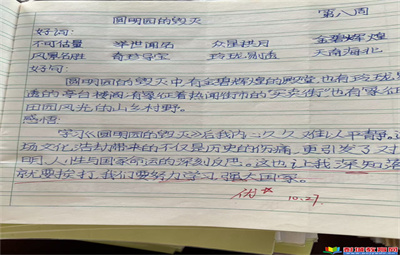 圆明园的毁灭 第八周
好词:
不可估量 举世闻名 众星拱月 金碧辉煌
风景名胜 奇珍异宝 玲珑剔透 天南海北
好句:
圆明园的毁灭中有金碧辉煌的殿堂,也有玲珑剔
透的亭台楼阁;有象征着热闹街市的“买卖街”也有象征
田园风光的山乡村野。
感悟:
学习《圆明园的毁灭》后我内心久久难以平静。这
场文化浩劫带来的不仅是历史的伤痛,更引发了对
明、人性与国家命运的深刻反思。这也让我深知落
就要挨打,我们要努力学习,强大国家。
优 10.27